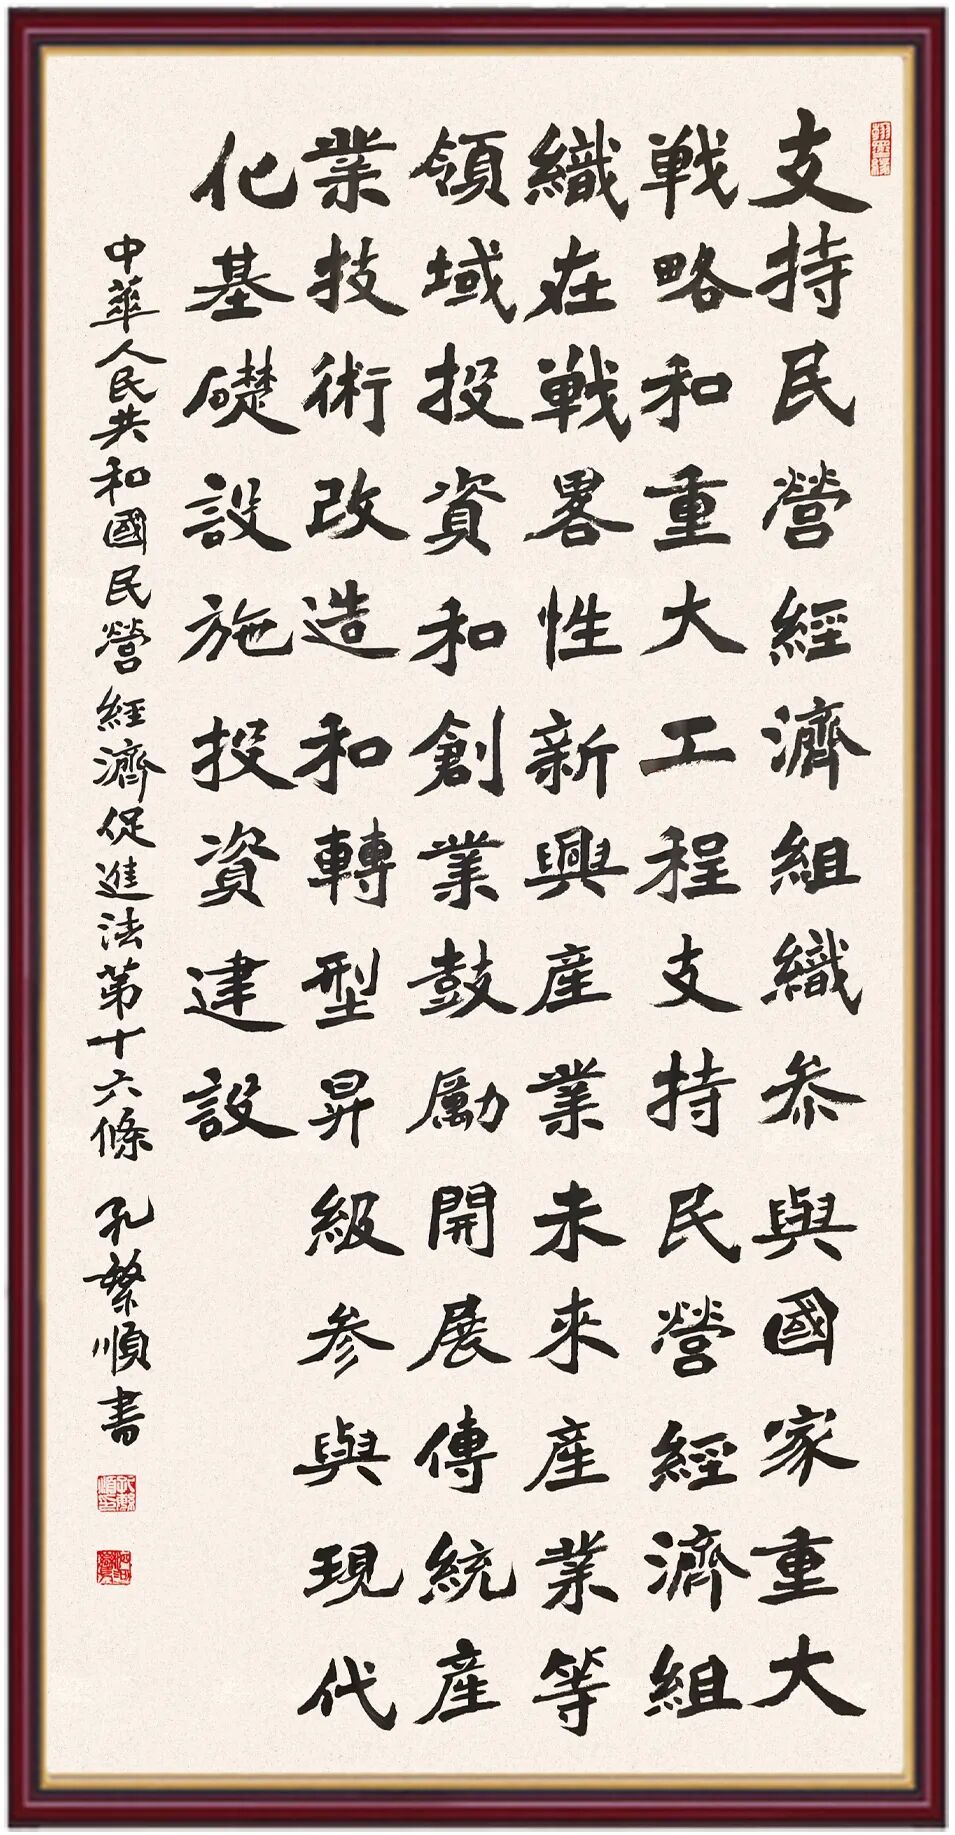 翰墨緣
支持民營經濟組織叅與國家重大
戦略和重大工程支持民營經濟組
織在戦畧性新興産業未來産業等
領域投資和創業鼓勵開展傳統産
業技術改造和轉型昇級参與現代
化基礎設施投資建設
中華人民共和國民營經濟促進法第十六條 孔繁順書
孔繁順印